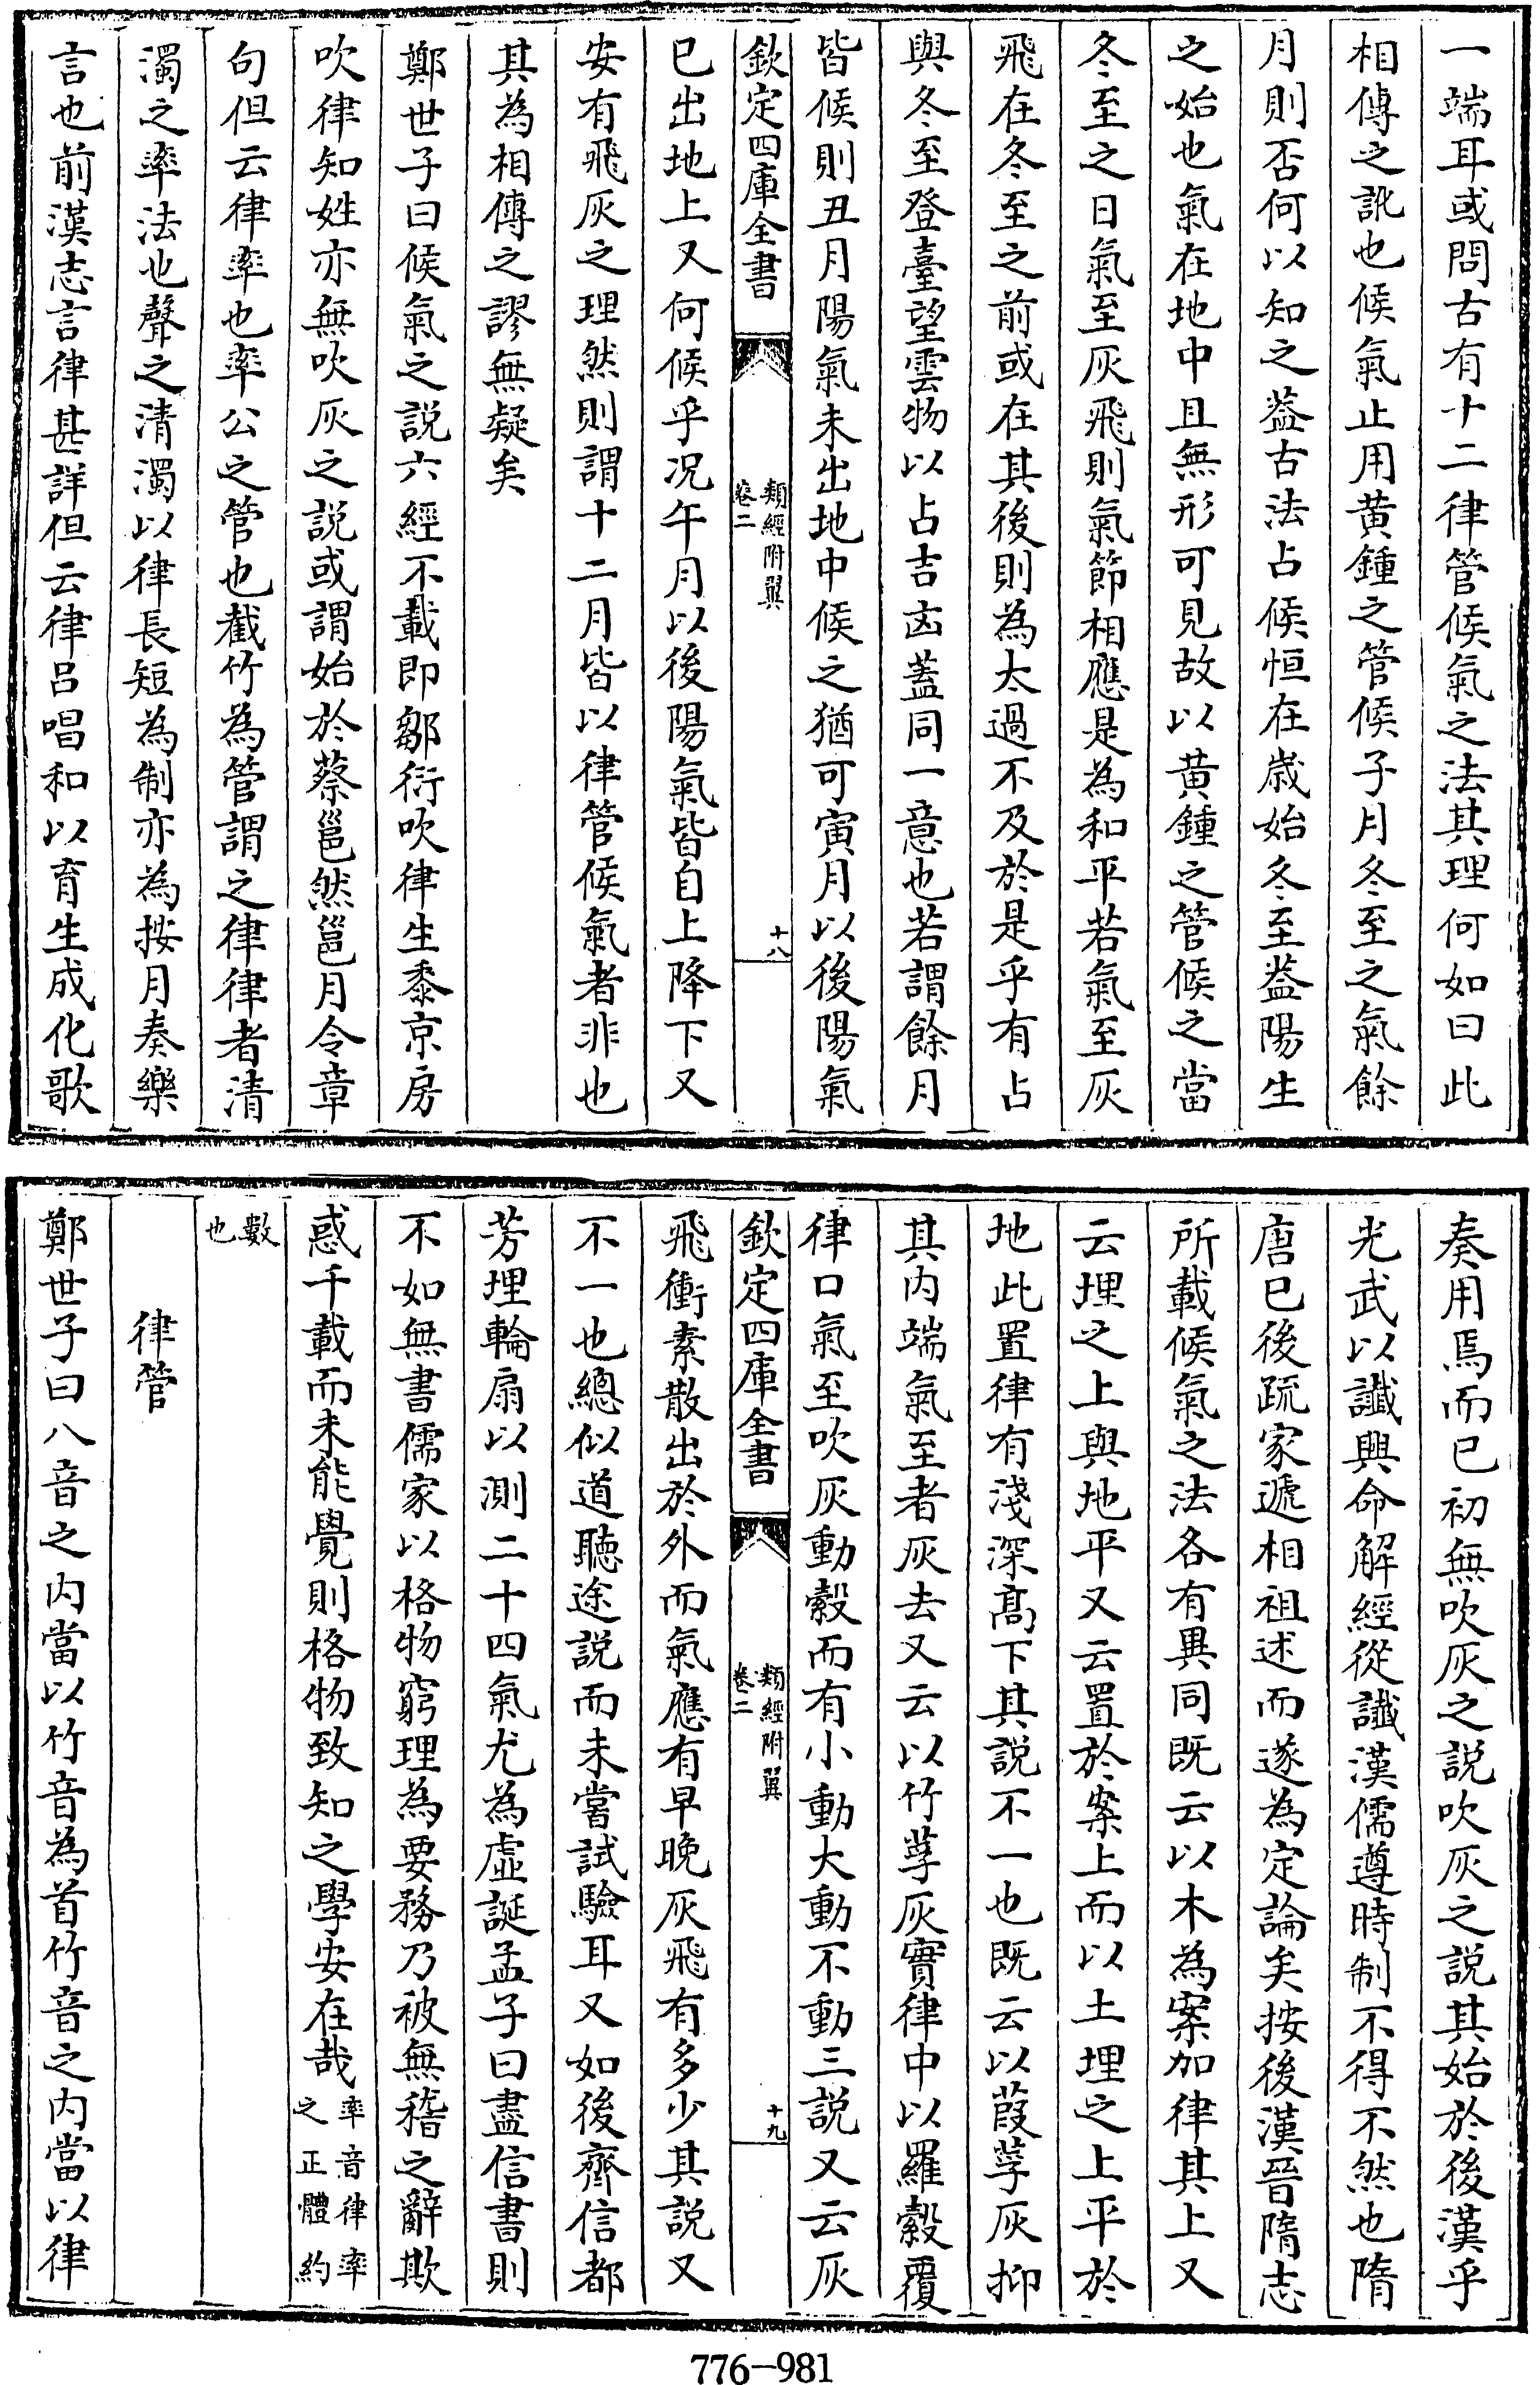 一端耳或問古有十二律管候氣之法其理何如曰此
相傳之訛也候氣止用黄鍾之管候子月冬至之氣餘
月則否何以知之葢古法占候恒在歲始冬至葢陽生
之始也氣在地中且無形可見故以黄鍾之管候之當
冬至之日氣至灰飛則氣節相應是為和平若氣至灰
飛在冬至之前或在其後則為太過不及於是乎有占
與冬至登臺望雲物以占吉凶蓋同一意也若謂餘月
皆候則丑月陽氣未出地中候之猶可寅月以後陽氣
欽定四庫全書
類經附翼
卷二
十八
已出地上又何候乎况午月以後陽氣皆自上降下又
安有飛灰之理然則謂十二月皆以律管候氣者非也
其為相傳之謬無疑矣
鄭世子曰候氣之説六經不載即鄒衍吹律生黍京房
吹律知姓亦無吹灰之説或謂始於蔡邕然邕月令章
句但云律率也率公之管也截竹為管謂之律律者清
濁之率法也聲之清濁以律長短為制亦為按月奏樂
言也前漢志言律甚詳但云律呂唱和以育生成化歌
奏用焉而已初無吹灰之説吹灰之説其始於後漢乎
光武以讖興命解經從讖漢儒遵時制不得不然也隋
唐已後疏家遞相祖述而遂為定論矣按後漢晉隋志
所載候氣之法各有異同既云以木為案加律其上又
云埋之上與地平又云置於案上而以土埋之上平於
地此置律有淺深髙下其説不一也既云以葭莩灰抑
其内端氣至者灰去又云以竹莩灰實律中以羅縠覆
律口氣至吹灰動縠而有小動大動不動三説又云灰
欽定四庫全書
類經附翼
卷二
十九
飛衝素散出於外而氣應有早晚灰飛有多少其説又
不一也總似道聽途説而未嘗試驗耳又如後齊信都
芳埋輪扇以測二十四氣尤為虛誕孟子曰盡信書則
不如無書儒家以格物窮理為要務乃被無稽之辭欺
惑千載而未能覺則格物致知之學安在哉率音律率
之正體約
數
也
律管
鄭世子曰八音之内當以竹音為首竹音之内當以律
776-981